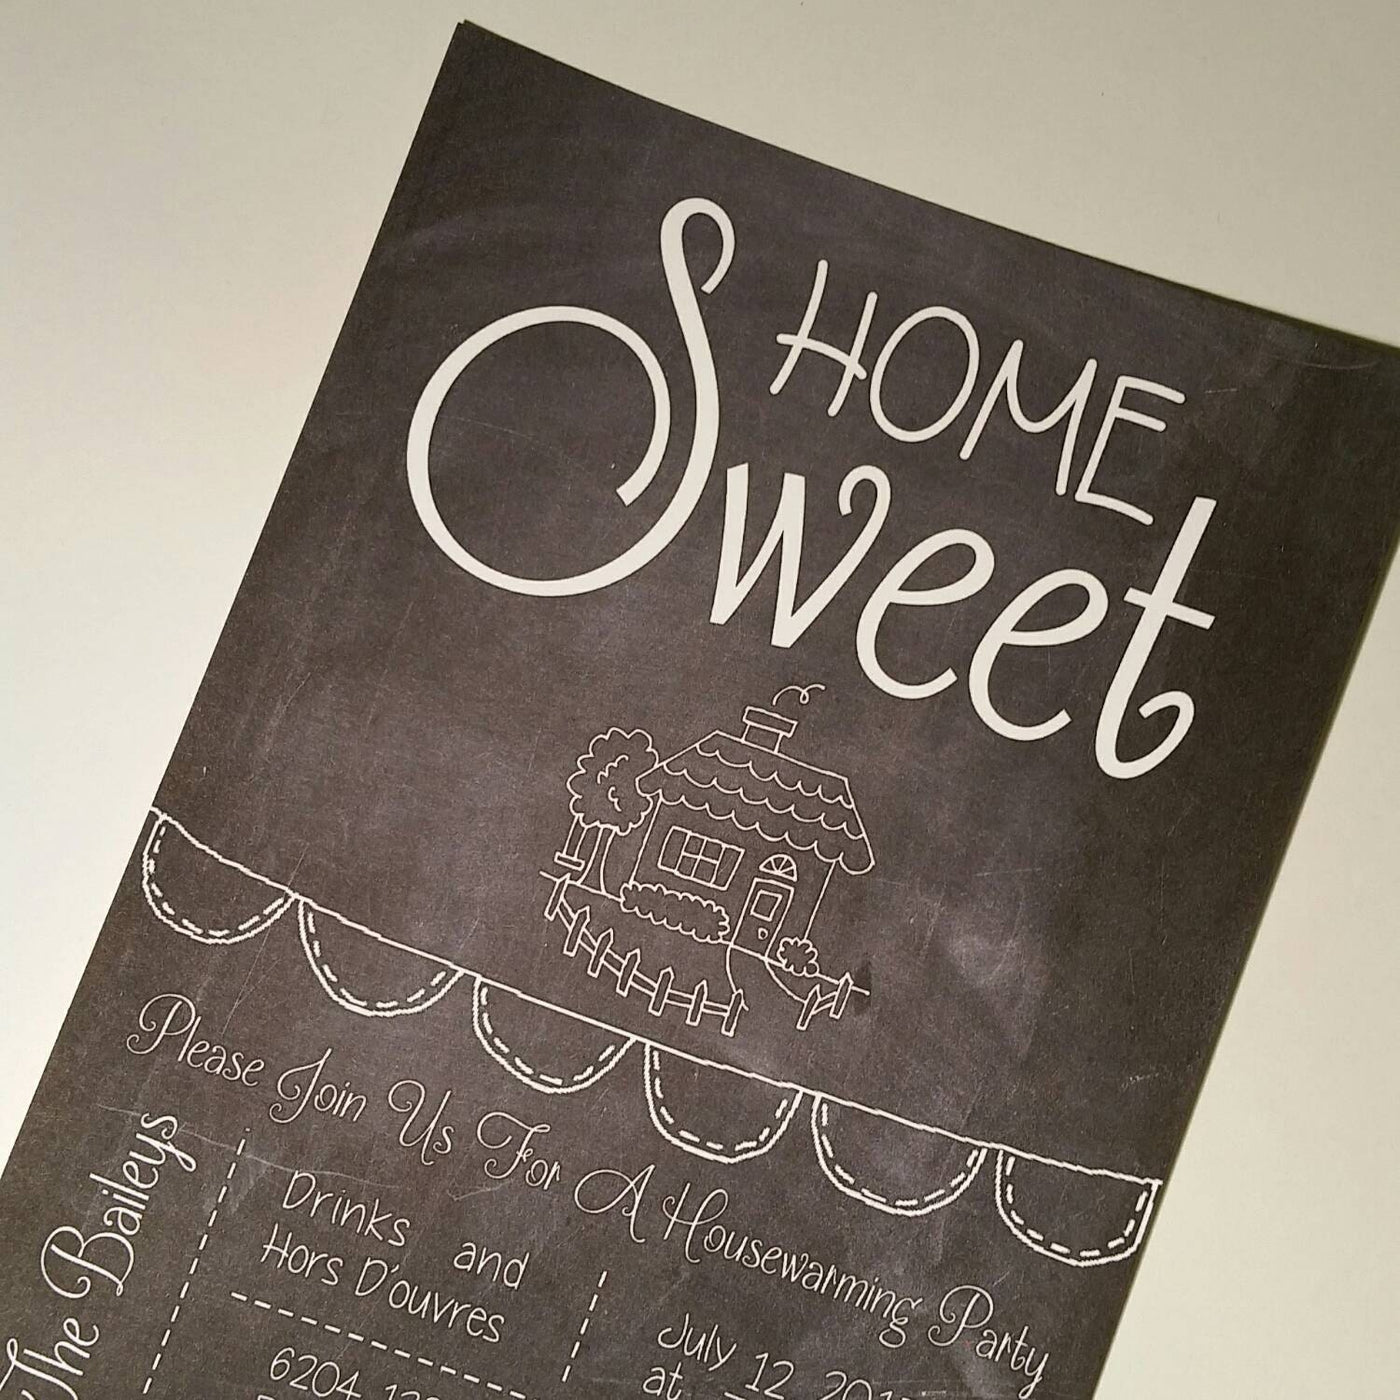 HOME
Sweet
Please Join Us For A Housewarming Party
The Baileys
Drinks and
Hors D'ouvres
July 12,
at
6204